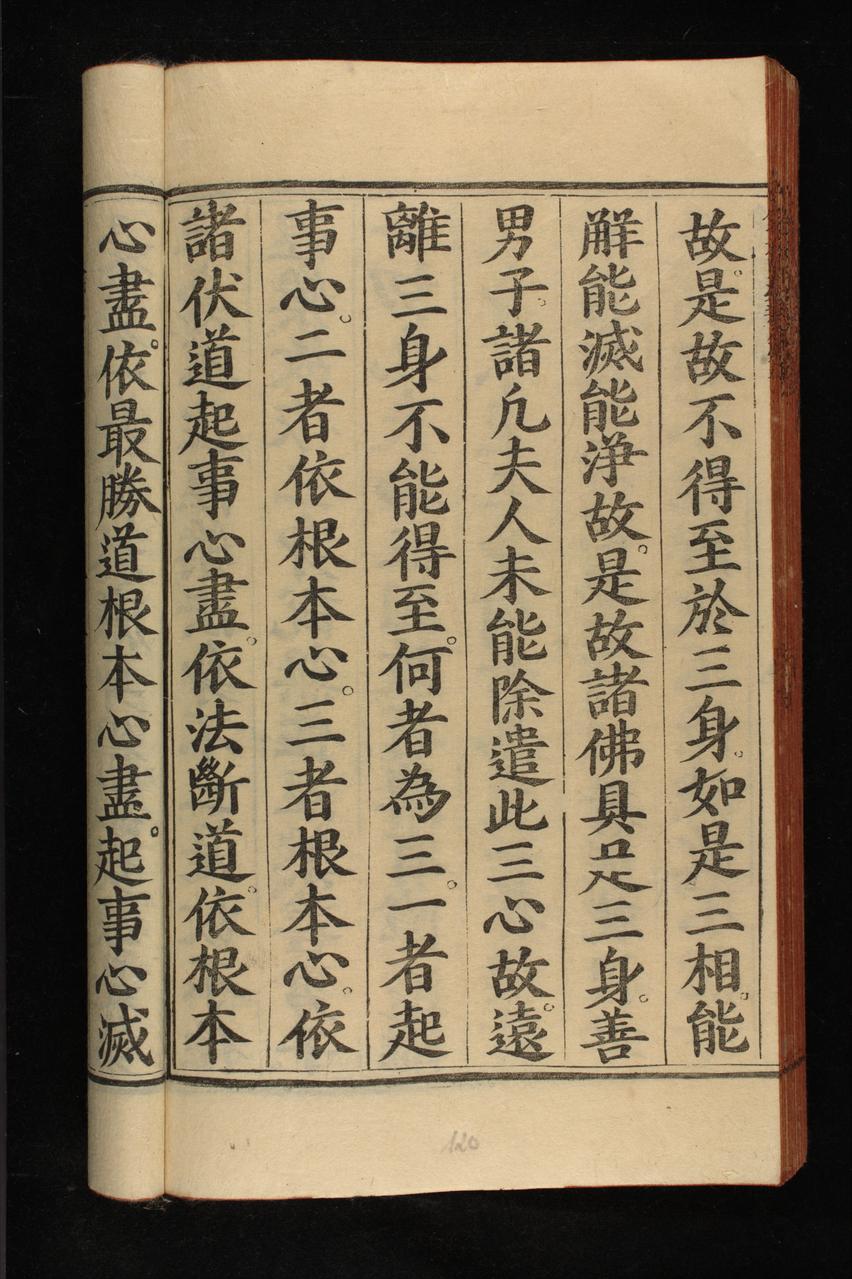 故。是故不得至於三身。如是三相。能
解能滅能淨故。是故諸佛具足三身。善
男子。諸凡夫人未能除遣此三心故。遠
離三身不能得至。何者為三。一者起
事心。二者依根本心。三者根本心。依
諸伏道起事心盡。依法斷道。依根本
心盡。依最勝道根本心盡。起事心滅
120